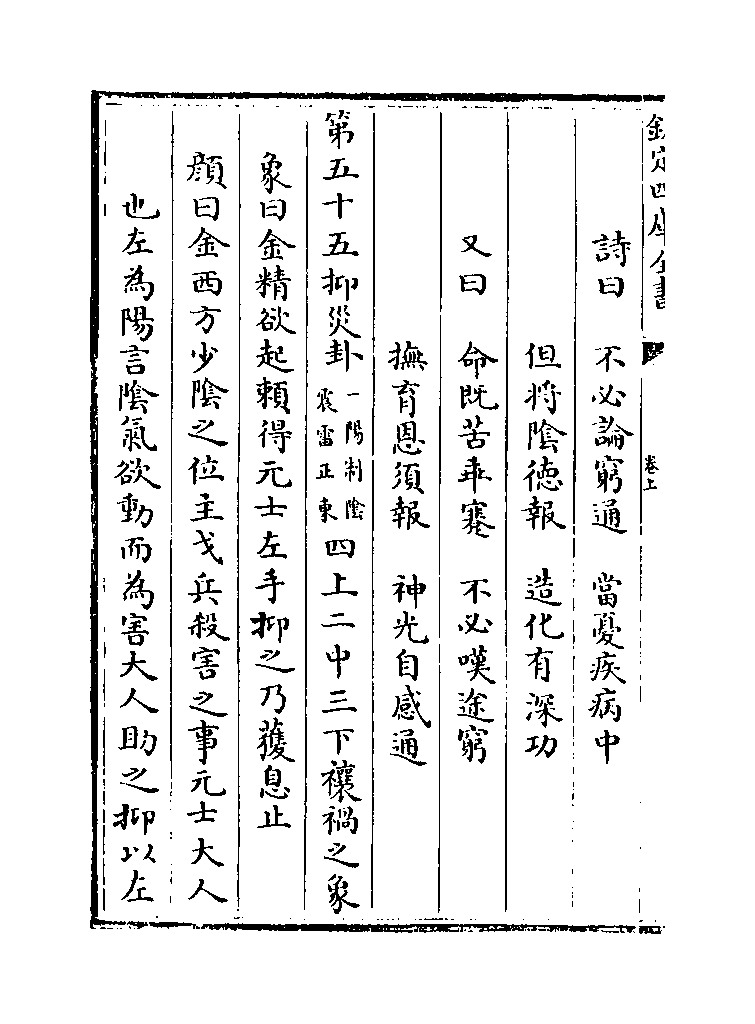 欽定四庫全書
卷上
詩曰　不必論窮通　當憂疾病中
但將陰徳報　造化有深功
又曰　命既苦乖蹇　不必嘆途窮
撫育恩須報　神光自感通
第五十五抑災卦一陽制陰震雷正東四上二中三下禳禍之象
象曰金精欲起頼得元士左手抑之乃獲息止
顔曰金西方少陰之位主戈兵殺害之事元士大人
也左為陽言陰氣欲動而為害大人助之抑以左